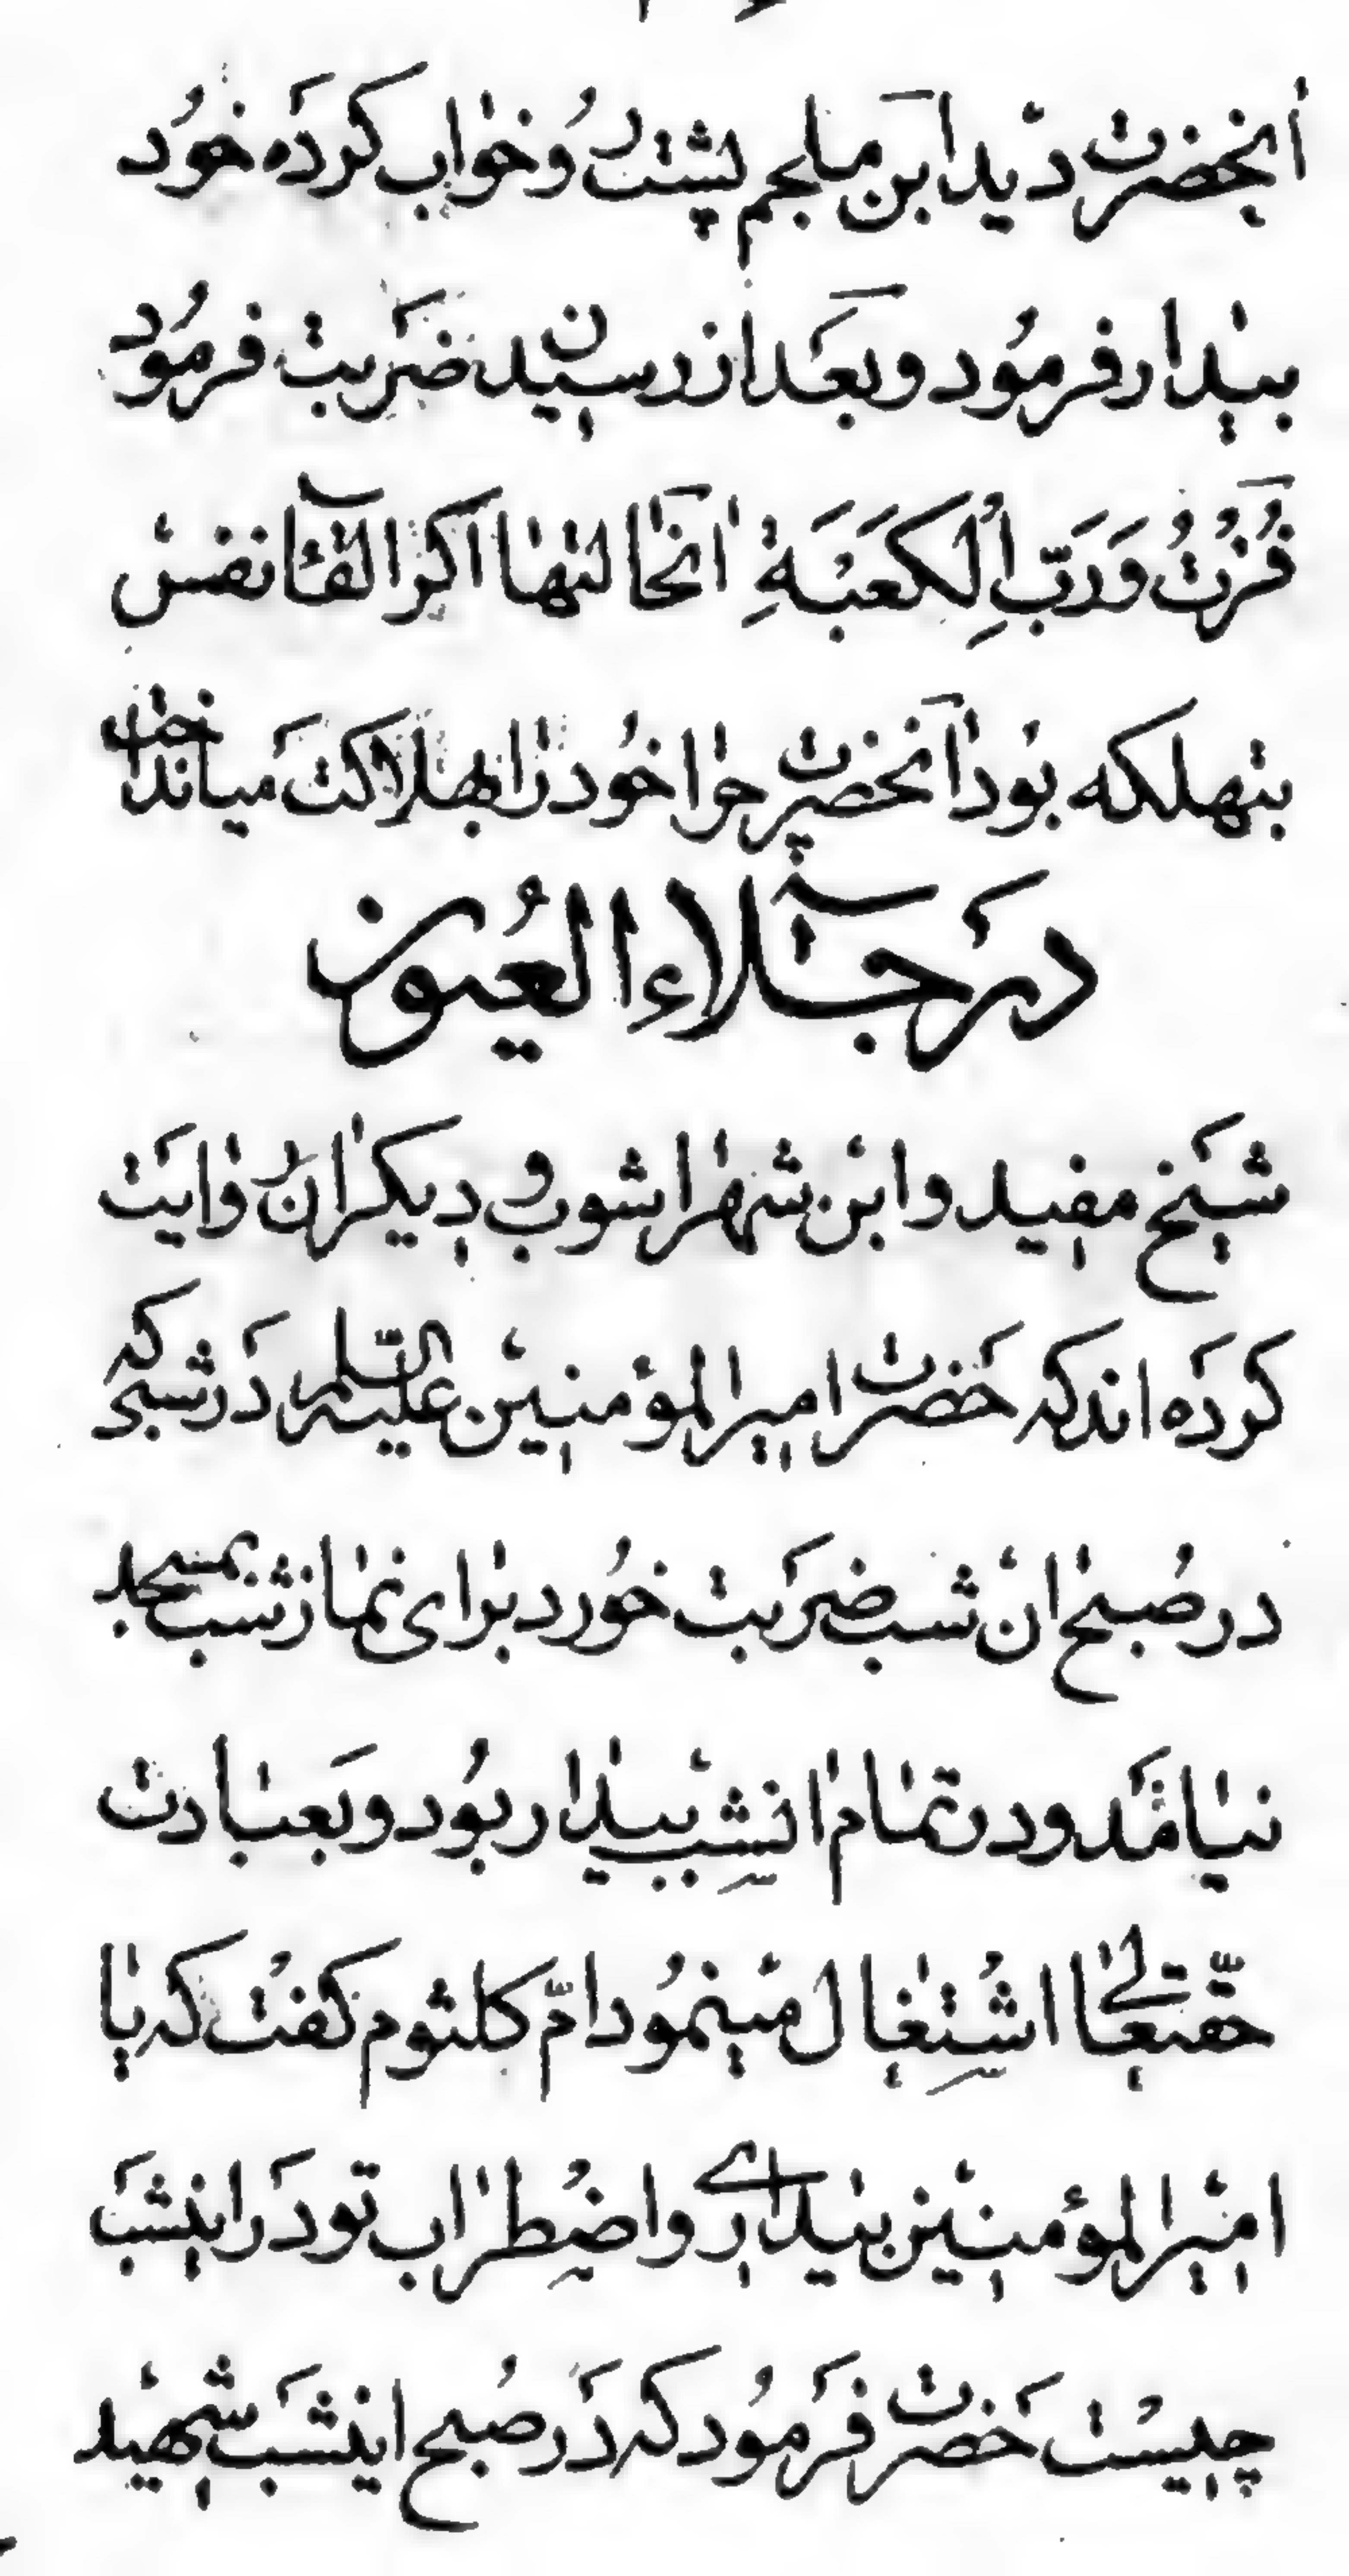 آنحضرت دید ابن ملجم پشت رُو خواب کرده خُود
بیدار فرمُود و بعَد از رسیدن ضرَبت فرمُود
فُزْتُ وَ رَبِّ الْکَعْبَةِ انحالتها اکر القآ نفس
بتهلکه بود آنحضرت چرا خُود را بهلاکت میانداخت
در جلاء العُیون
شیخ مفید و ابن شهراشوب و دیکران روایت
کرده اند که حضرت امیرالمؤمنین علیه السّلم در شبی که
در صُبح ان شب ضربت خُورد برای نماز شب بمسجد
نیامَد و در تمام انشب بیدار بوُد و بعبادت
حقّتعالی اشتغال مینمُود امّ کلثوم کفت که یا
امیرالمؤمنین بیداری و اضطراب تو در اینشب
چیست حضرت فرمُود که در صُبح اینشب شهید